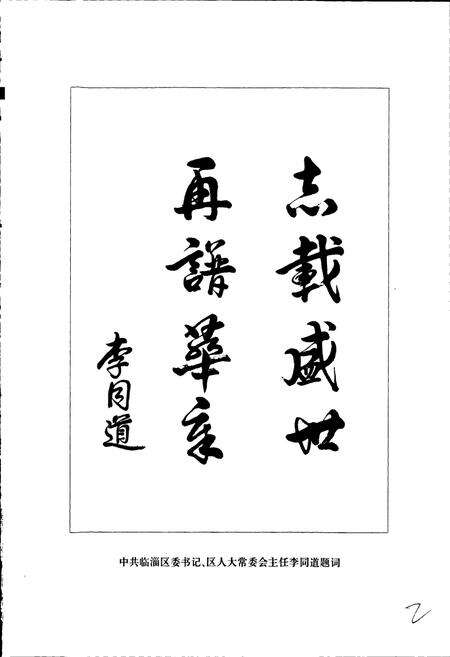 志載盛世
再譜華章
李同道
中共临淄区委书记、区人大常委会主任李同道题词
2